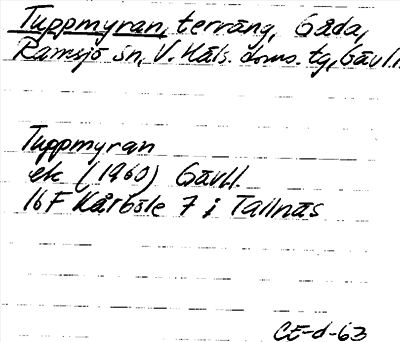 Tuppmyran, terräng, Gåda,
Ramsjö sn, V. Häls. doms. tg, Gävl.l.
Tuppmyran
ek (1960) Gävl.l.
16F Kårböle 7 i Tallnäs
CE-d-63